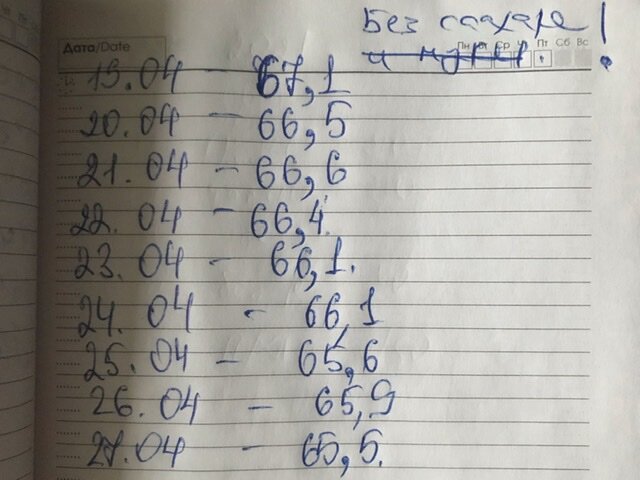 Без сахара!
Дата/Date
Пт Сб Вс
19.04 – 67,1
20.04 – 66,5
21.04 – 66,6
22.04 – 66,4
23.04 – 66,1.
24.04 - 66,1
25.04 – 65,6
26.04 – 65,9
27.04 – 65,5.